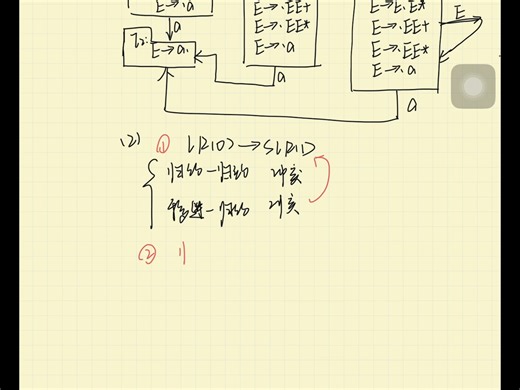 E→·a
E→·EE+
E→·EE*
E→·a
E→E·E*
E→·EE+
E→·EE*
E→·a
E
a
I₂:
E→a·
a
a
(2) ① LR(0)→SLR(1)
归约-归约 冲突
移进-归约 冲突
②